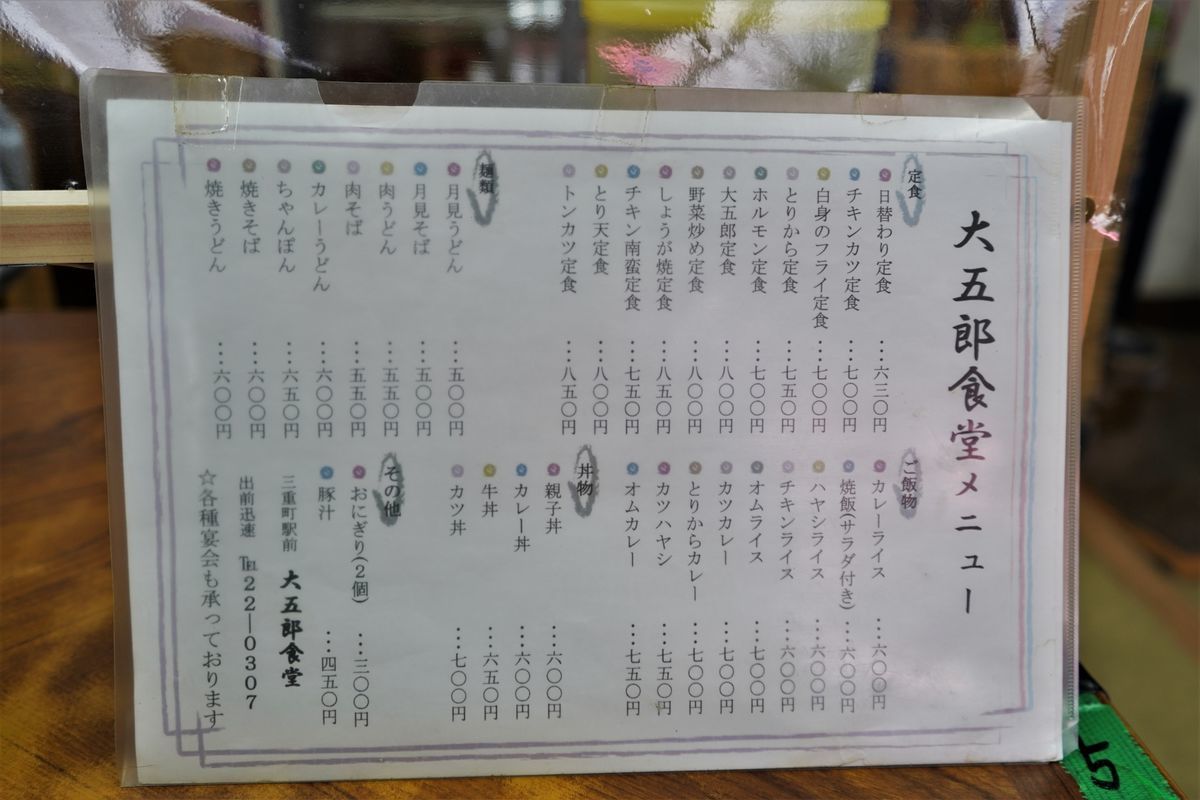 大五郎食堂メニュー
定食
日替わり定食…六三〇円
チキンカツ定食…七〇〇円
白身のフライ定食…七〇〇円
とりから定食…七五〇円
ホルモン定食…七〇〇円
大五郎定食…八〇〇円
野菜炒め定食…八〇〇円
しょうが焼定食…八五〇円
チキン南蛮定食…七五〇円
とり天定食…八〇〇円
トンカツ定食…八五〇円
麺類
月見うどん…五〇〇円
月見そば…五〇〇円
肉うどん…五五〇円
肉そば…五五〇円
カレーうどん…六〇〇円
ちゃんぽん…六五〇円
焼きそば…六〇〇円
焼きうどん…六〇〇円
ご飯物
カレーライス…六〇〇円
焼飯(サラダ付き)…六〇〇円
ハヤシライス…六〇〇円
チキンライス…六〇〇円
オムライス…七〇〇円
カツカレー…七〇〇円
とりからカレー…七〇〇円
カツハヤシ…七五〇円
オムカレー…七五〇円
丼物
親子丼…六〇〇円
カレー丼…六〇〇円
牛丼…六五〇円
カツ丼…七〇〇円
その他
おにぎり(2個)…三〇〇円
豚汁…四五〇円
三重町駅前 大五郎食堂
出前迅速 ℡22―0307
☆各種宴会も承っております
5